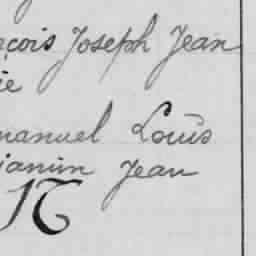 çois Joseph Jean
ie
manuel Louis
jamin Jean